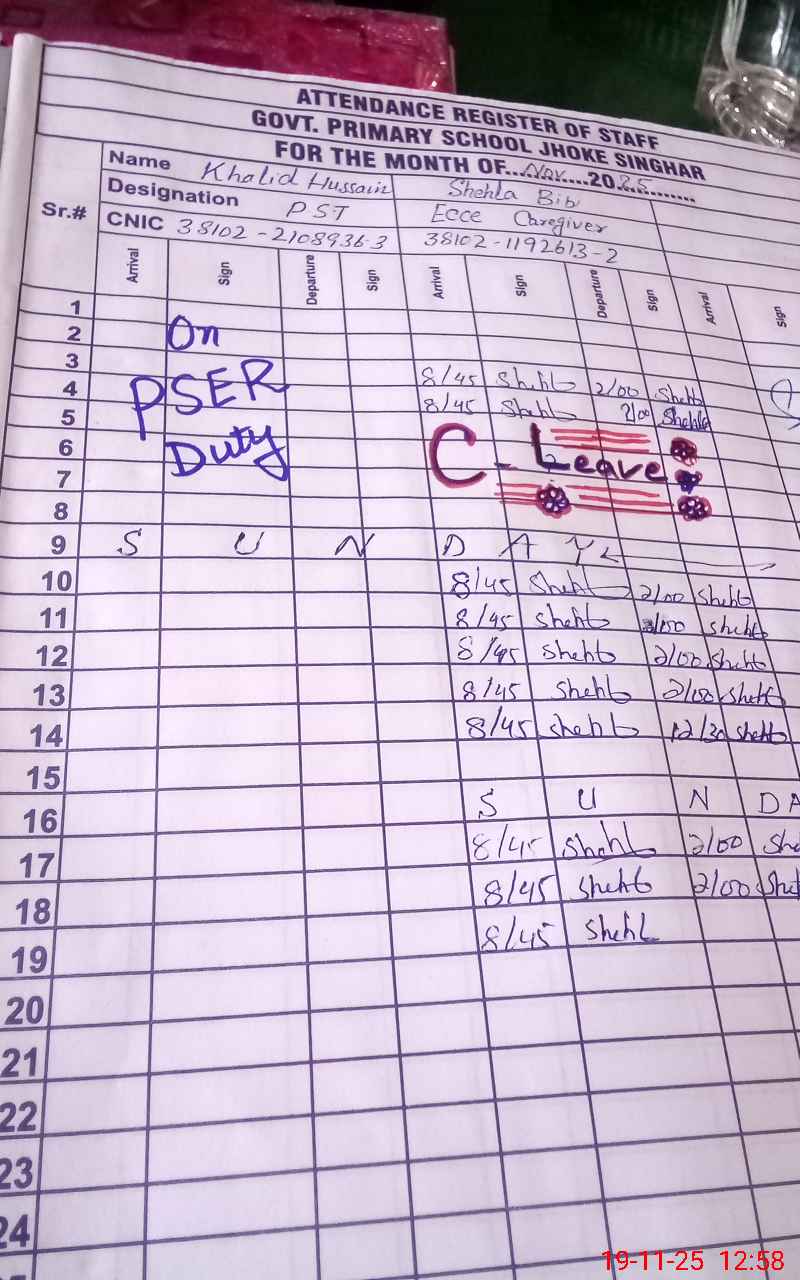 ATTENDANCE REGISTER OF STAFF
GOVT. PRIMARY SCHOOL JHOKE SINGHAR
FOR THE MONTH OF...Nov....2025.......
Name Khalid Hussain Shehla Bibi
Designation PST Ecce Caregiver
Sr.# CNIC 38102-2108936-3 38102-1192613-2
Arrival Sign Departure Sign Arrival Sign Departure Sign Arrival Sign
1
2 On
3
4 PSER 8/45 Shehla 2/00 Shehla
5 8/45 Shehla 2/00 Shehla
6 Duty C-Leave
7
8
9 S U N D A Y
10 8/45 Shehla 2/00 Shehla
11 8/45 Shehla 2/00 Shehla
12 8/45 Shehla 2/00 Shehla
13 8/45 Shehla 2/00 Shehla
14 8/45 Shehla 12/30 Shehla
15
16 S U N D A
17 8/45 Shehla 2/00 She
18 8/45 Shehla 2/00 She
19 8/45 Shehla
20
21
22
23
24
19-11-25 12:58